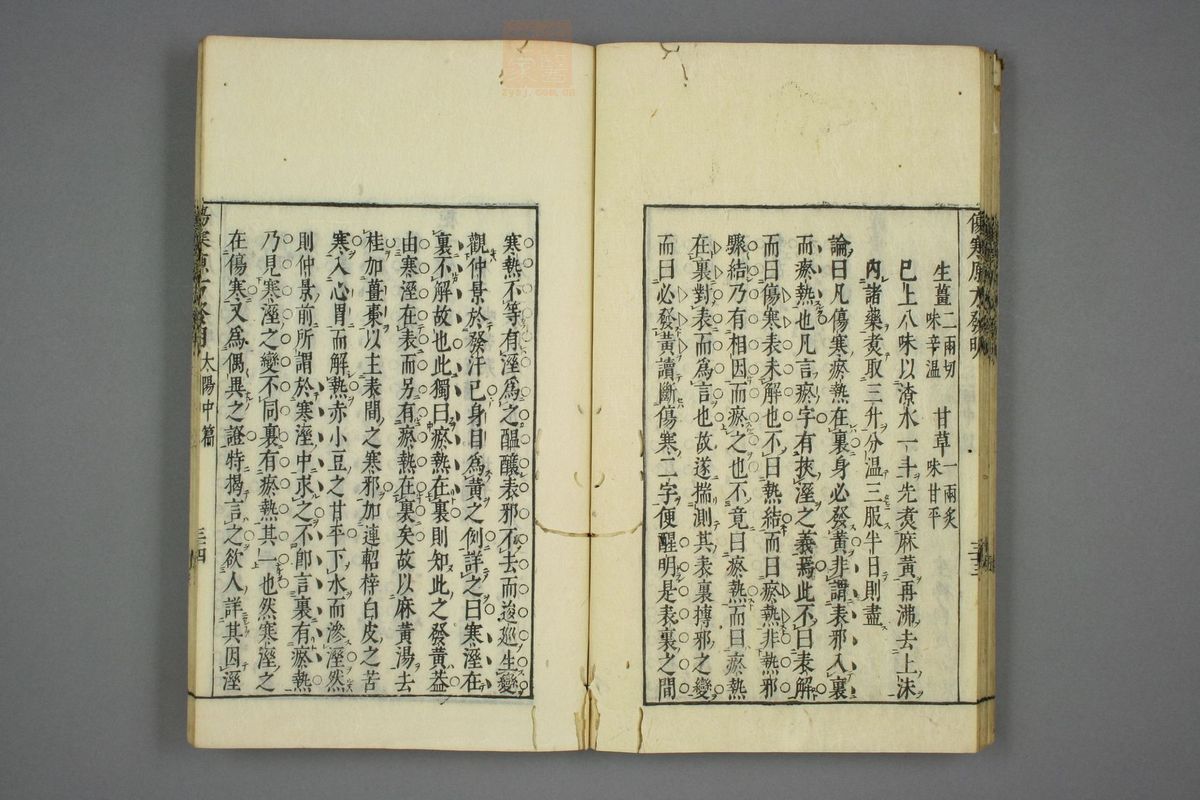 傷寒原方發明
生薑二兩切 味辛溫 甘草一兩炙 味甘平
已上八味以潦水一斗先煑麻黃再沸去上沫
內諸藥煑取三升分溫三服半日則盡
論曰凡傷寒瘀熱在裏身必發黃非謂表邪入裏
而瘀熱也凡言瘀字有挾溼之義焉此不曰表解
而曰傷寒表未解也不曰熱結而曰瘀熱非熱邪
驟結乃有相因而瘀之也不竟曰瘀熱而曰瘀熱
在裏對表而爲言也故遂揣測其表裏摶邪之變
而曰必發黃讀斷傷寒二字便醒明是表裏之間
寒熱不等有溼爲之醞釀表邪不去而逡巡生變
觀仲景於發汗已身目爲黃之例詳之曰寒溼在
裏不解故也此獨曰瘀熱在裏則知此之發黃葢
由寒溼在表而另有瘀熱在裏矣故以麻黃湯去
桂加薑棗以主表間之寒邪加連軺梓白皮之苦
寒入心胃而解熱赤小豆之甘平下水而滲溼然
則仲景前所謂於寒溼中求之不卽言裏有瘀熱
乃見寒溼之變不同裏有瘀熱其一也然寒溼之
在傷寒又爲偶異之證特揭言之欲人詳其因溼
太陽中篇
三四
zysj.com.cn